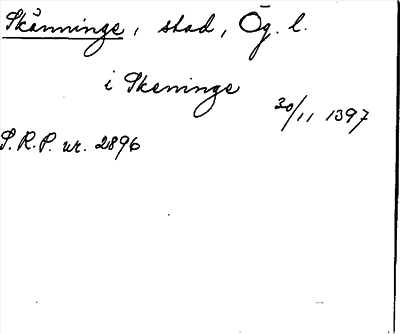 Skänninge, stad, Ög. l.
i Skeninge
30/11 1397
S.R.P. nr. 2896